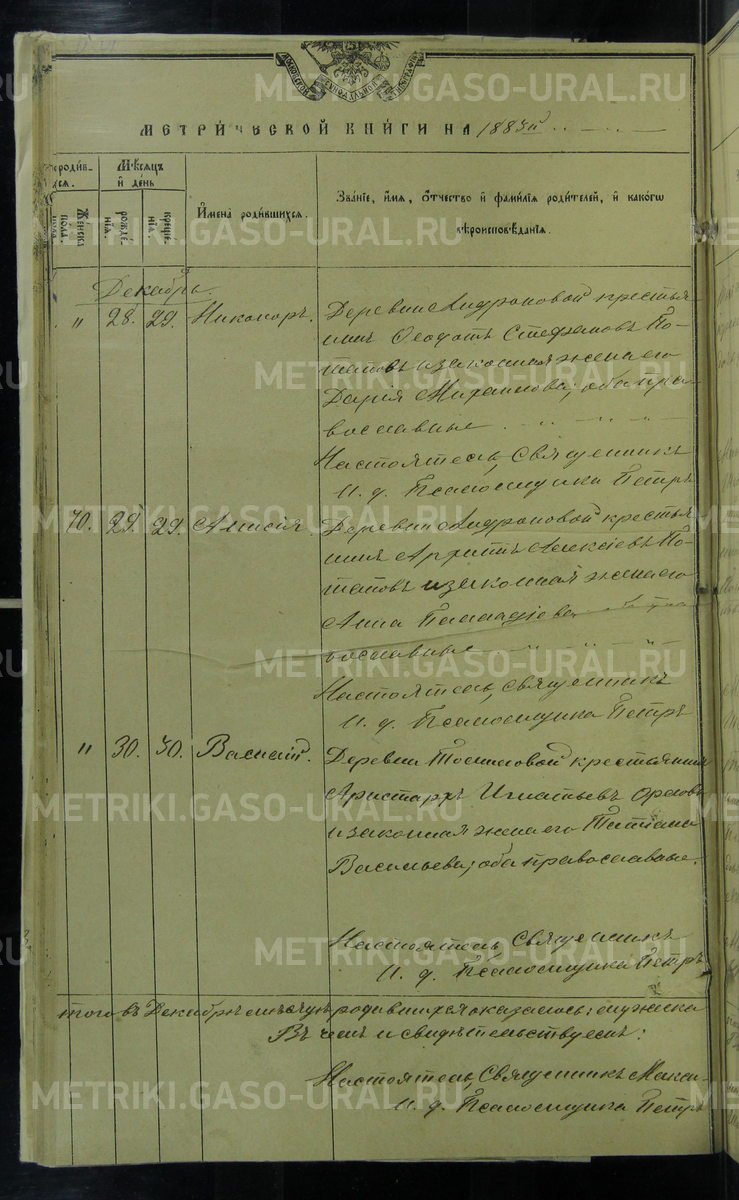 МЕТРИ́ЧЕСКОЙ КНИ́ГИ НА 1885й
родив-
хся.
Мѣсяцъ
и день
Женска
пола.
рожде-
нія.
креще-
нія.
Имена родившихся.
Званіе, имя, отчество и фамилія родителей, и какогѡ
вѣроисповѣданія.
Декабрь.
" 28. 29. Никаноръ.
Деревни Андроновой крестья-
нинъ Ѳеодотъ Стефановъ По-
таповъ и законная жена его
Дарія Михаилова; оба пра-
вославные.
Настоятель, Священникъ
И. д. Псаломщика Петръ
70. 29. 29. Анисія.
Деревни Андроновой крестья-
нинъ Архипъ Алексіевъ По-
таповъ и законная жена его
Анна Палладіева
вославные
Настоятель, Священникъ
И. д. Псаломщика Петръ
" 30. 30. Василій.
Деревни крестьянинъ
Аристархъ Игнатьевъ Орловъ
и законная жена его Татіана
Васильева; оба православные.
Настоятель, Священникъ
И. д. Псаломщика Петръ
того въ Декабрѣ мѣсяцѣ родившихся оказалось: мужска
Въ чемъ и свидѣтельствуемъ:
Настоятель, Священникъ Макси-
И. д. Псаломщика Петръ
METRIKI.GASO-URAL.RU